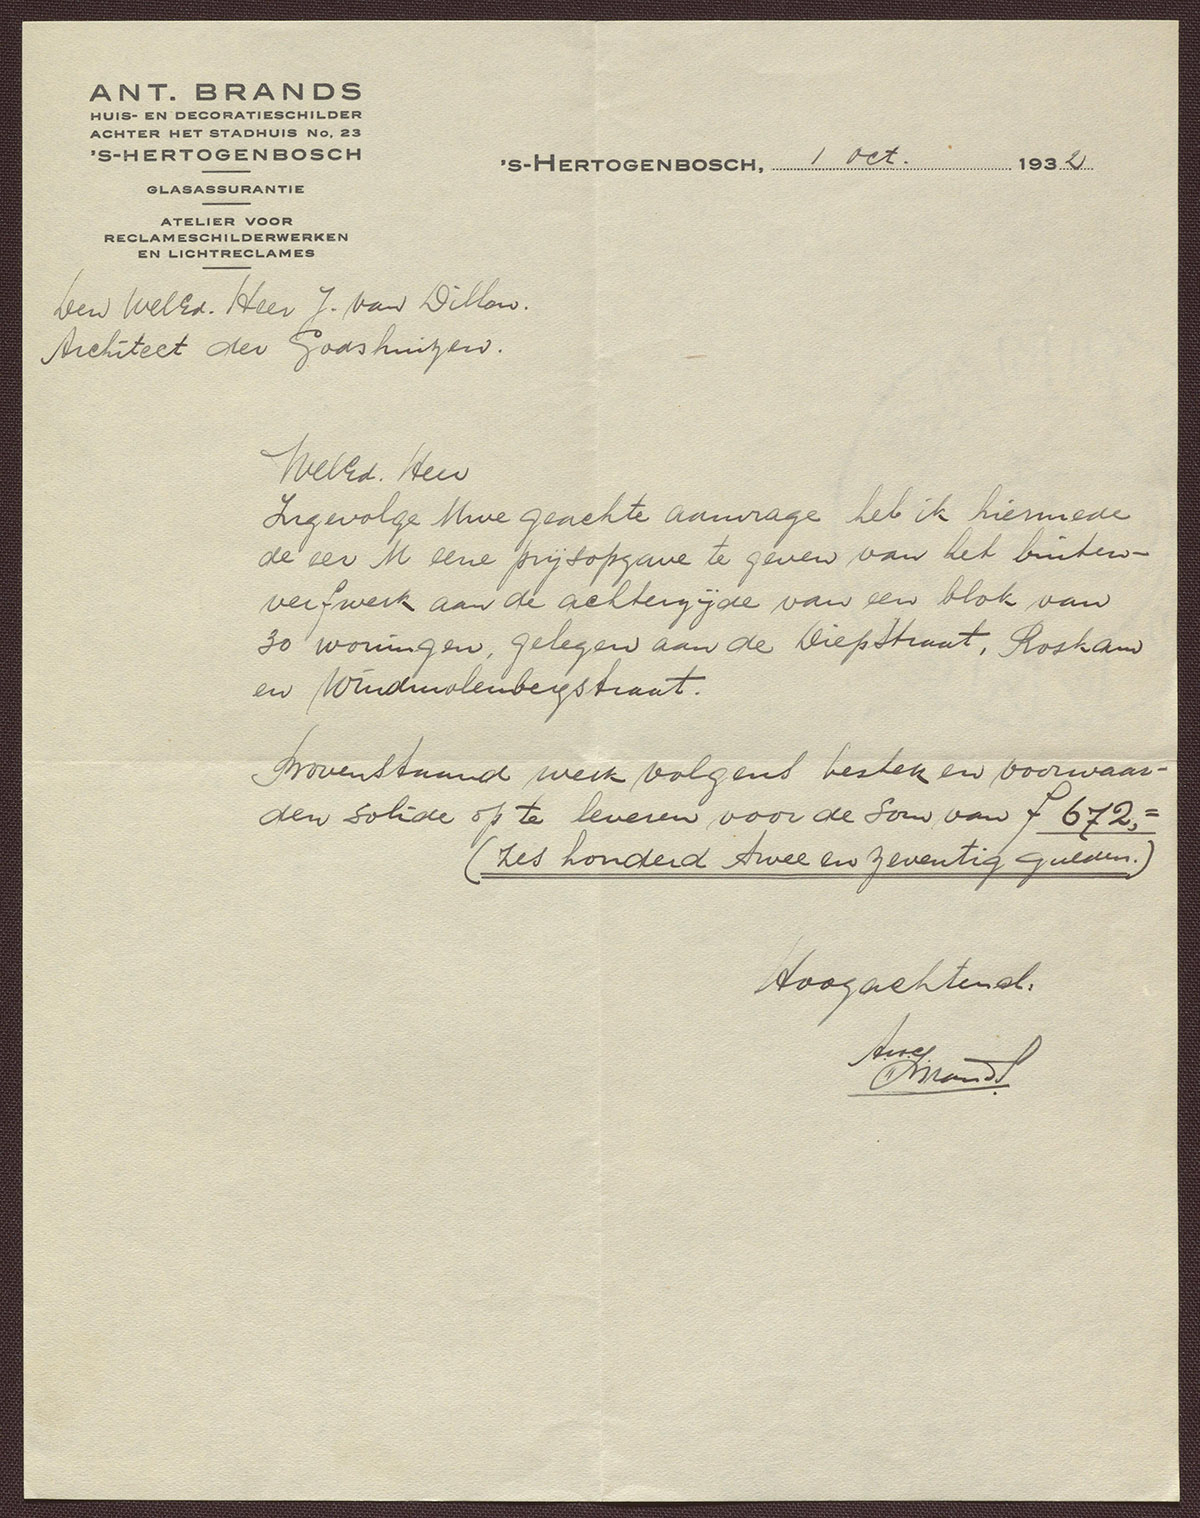 ANT. BRANDS
HUIS- EN DECORATIESCHILDER
ACHTER HET STADHUIS No. 23
'S-HERTOGENBOSCH
GLASASSURANTIE
ATELIER VOOR
RECLAMESCHILDERWERKEN
EN LICHTRECLAMES
'S-HERTOGENBOSCH, 1 Oct. 1932
Den WelEd. Heer J. van Dillen.
Architect der Godshuizen.
WelEd. Heer
Ingevolge Uwe geachte aanvrage heb ik hiermede
de eer U eene prijsopgave te geven van het buiten-
verfwerk aan de achterzijde van een blok van
30 woningen, gelegen aan de Diepstraat, Roskam
en Windmolenbergstraat.
Bovenstaand werk volgens bestek en voorwaar-
den solide op te leveren voor de som van f 672,=
(Zes honderd twee en zeventig gulden.)
Hoogachtend.
Brands